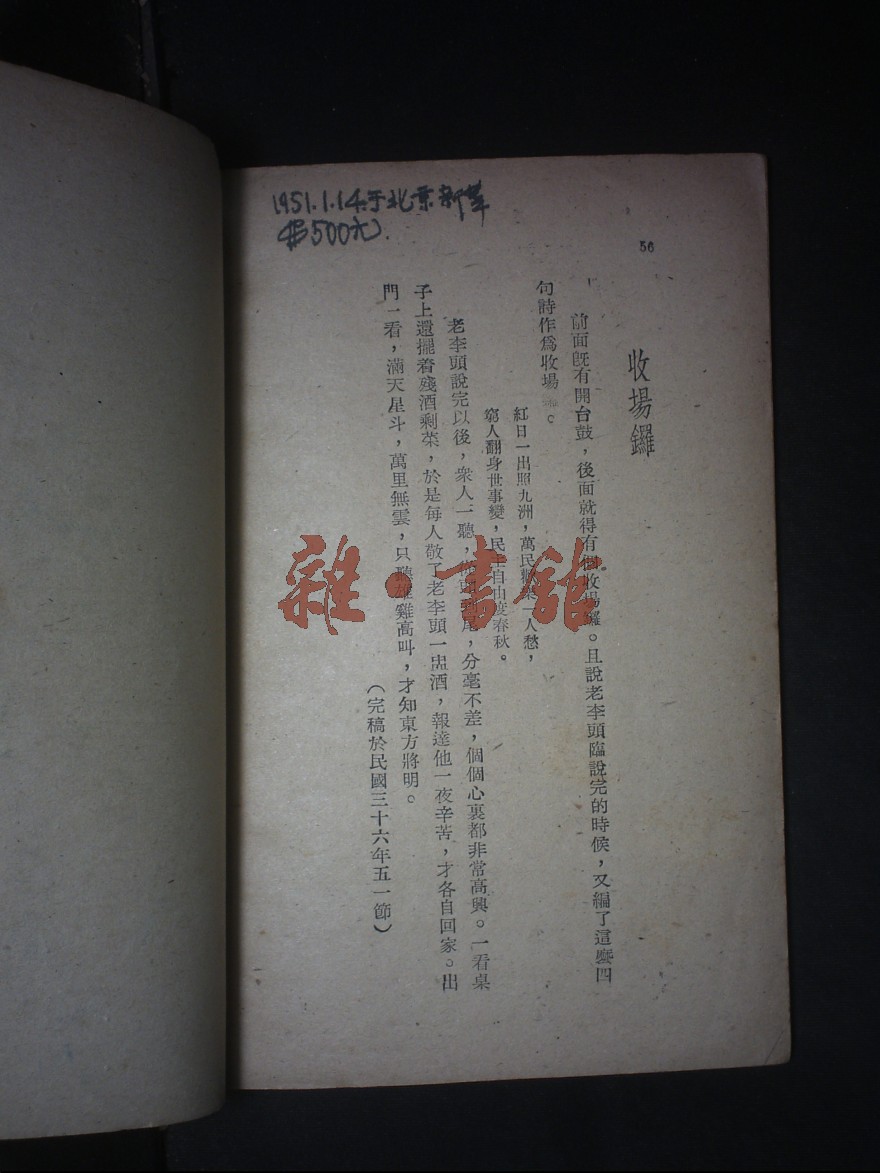 1951.1.14于北京新華
￥500元
56
收場鑼
前面既有開台鼓，後面就得有個收場鑼。且說老李頭臨說完的時候，又編了這麼四
句詩作爲收場。
紅日一出照九洲，萬民歡樂一人愁，
窮人翻身世事變，民主自由度春秋。
老李頭說完以後，衆人一聽，尾，分毫不差，個個心裏都非常高興。一看桌
子上還擺着殘酒剩菜，於是每人敬了老李頭一盅酒，報達他一夜辛苦，才各自回家。出
門一看，滿天星斗，萬里無雲，只聽雄雞高叫，才知東方將明。
（完稿於民國三十六年五一節）
雜·書館